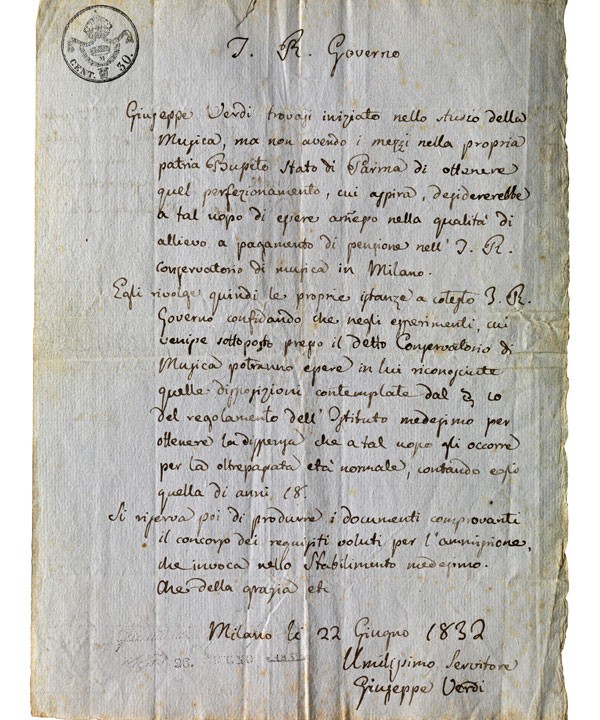 CENT. 30.
I. R. Governo
Giuseppe Verdi trovasi iniziato nello studio della
Musica, ma non avendo i mezzi nella propria
patria Busseto Stato di Parma di ottenere
quel perfezionamento, cui aspira, desidererebbe
a tal uopo di essere amesso nella qualità di
allievo a pagamento di pensione nell' I. R.
Conservatorio di musica in Milano.
Egli rivolge quindi le proprie istanze a cotesto I. R.
Governo confidando che negli esperimenti, cui
venisse sottoposto presso il detto Conservatorio di
Musica potranno essere in lui riconosciute
quelle disposizioni contemplate dal § 10
del regolamento dell' Istituto medesimo per
ottenere la dispensa che a tal uopo gli occorre
per la oltrepassata età normale, contando esso
quella di anni 18.
Si riserva poi di produrre i documenti comprovanti
il concorso dei requisiti voluti per l'ammissione,
che invoca nello Stabilimento medesimo.
Che della grazia etc
Milano li 22 Giugno 1832
Umilissimo Servitore
Giuseppe Verdi